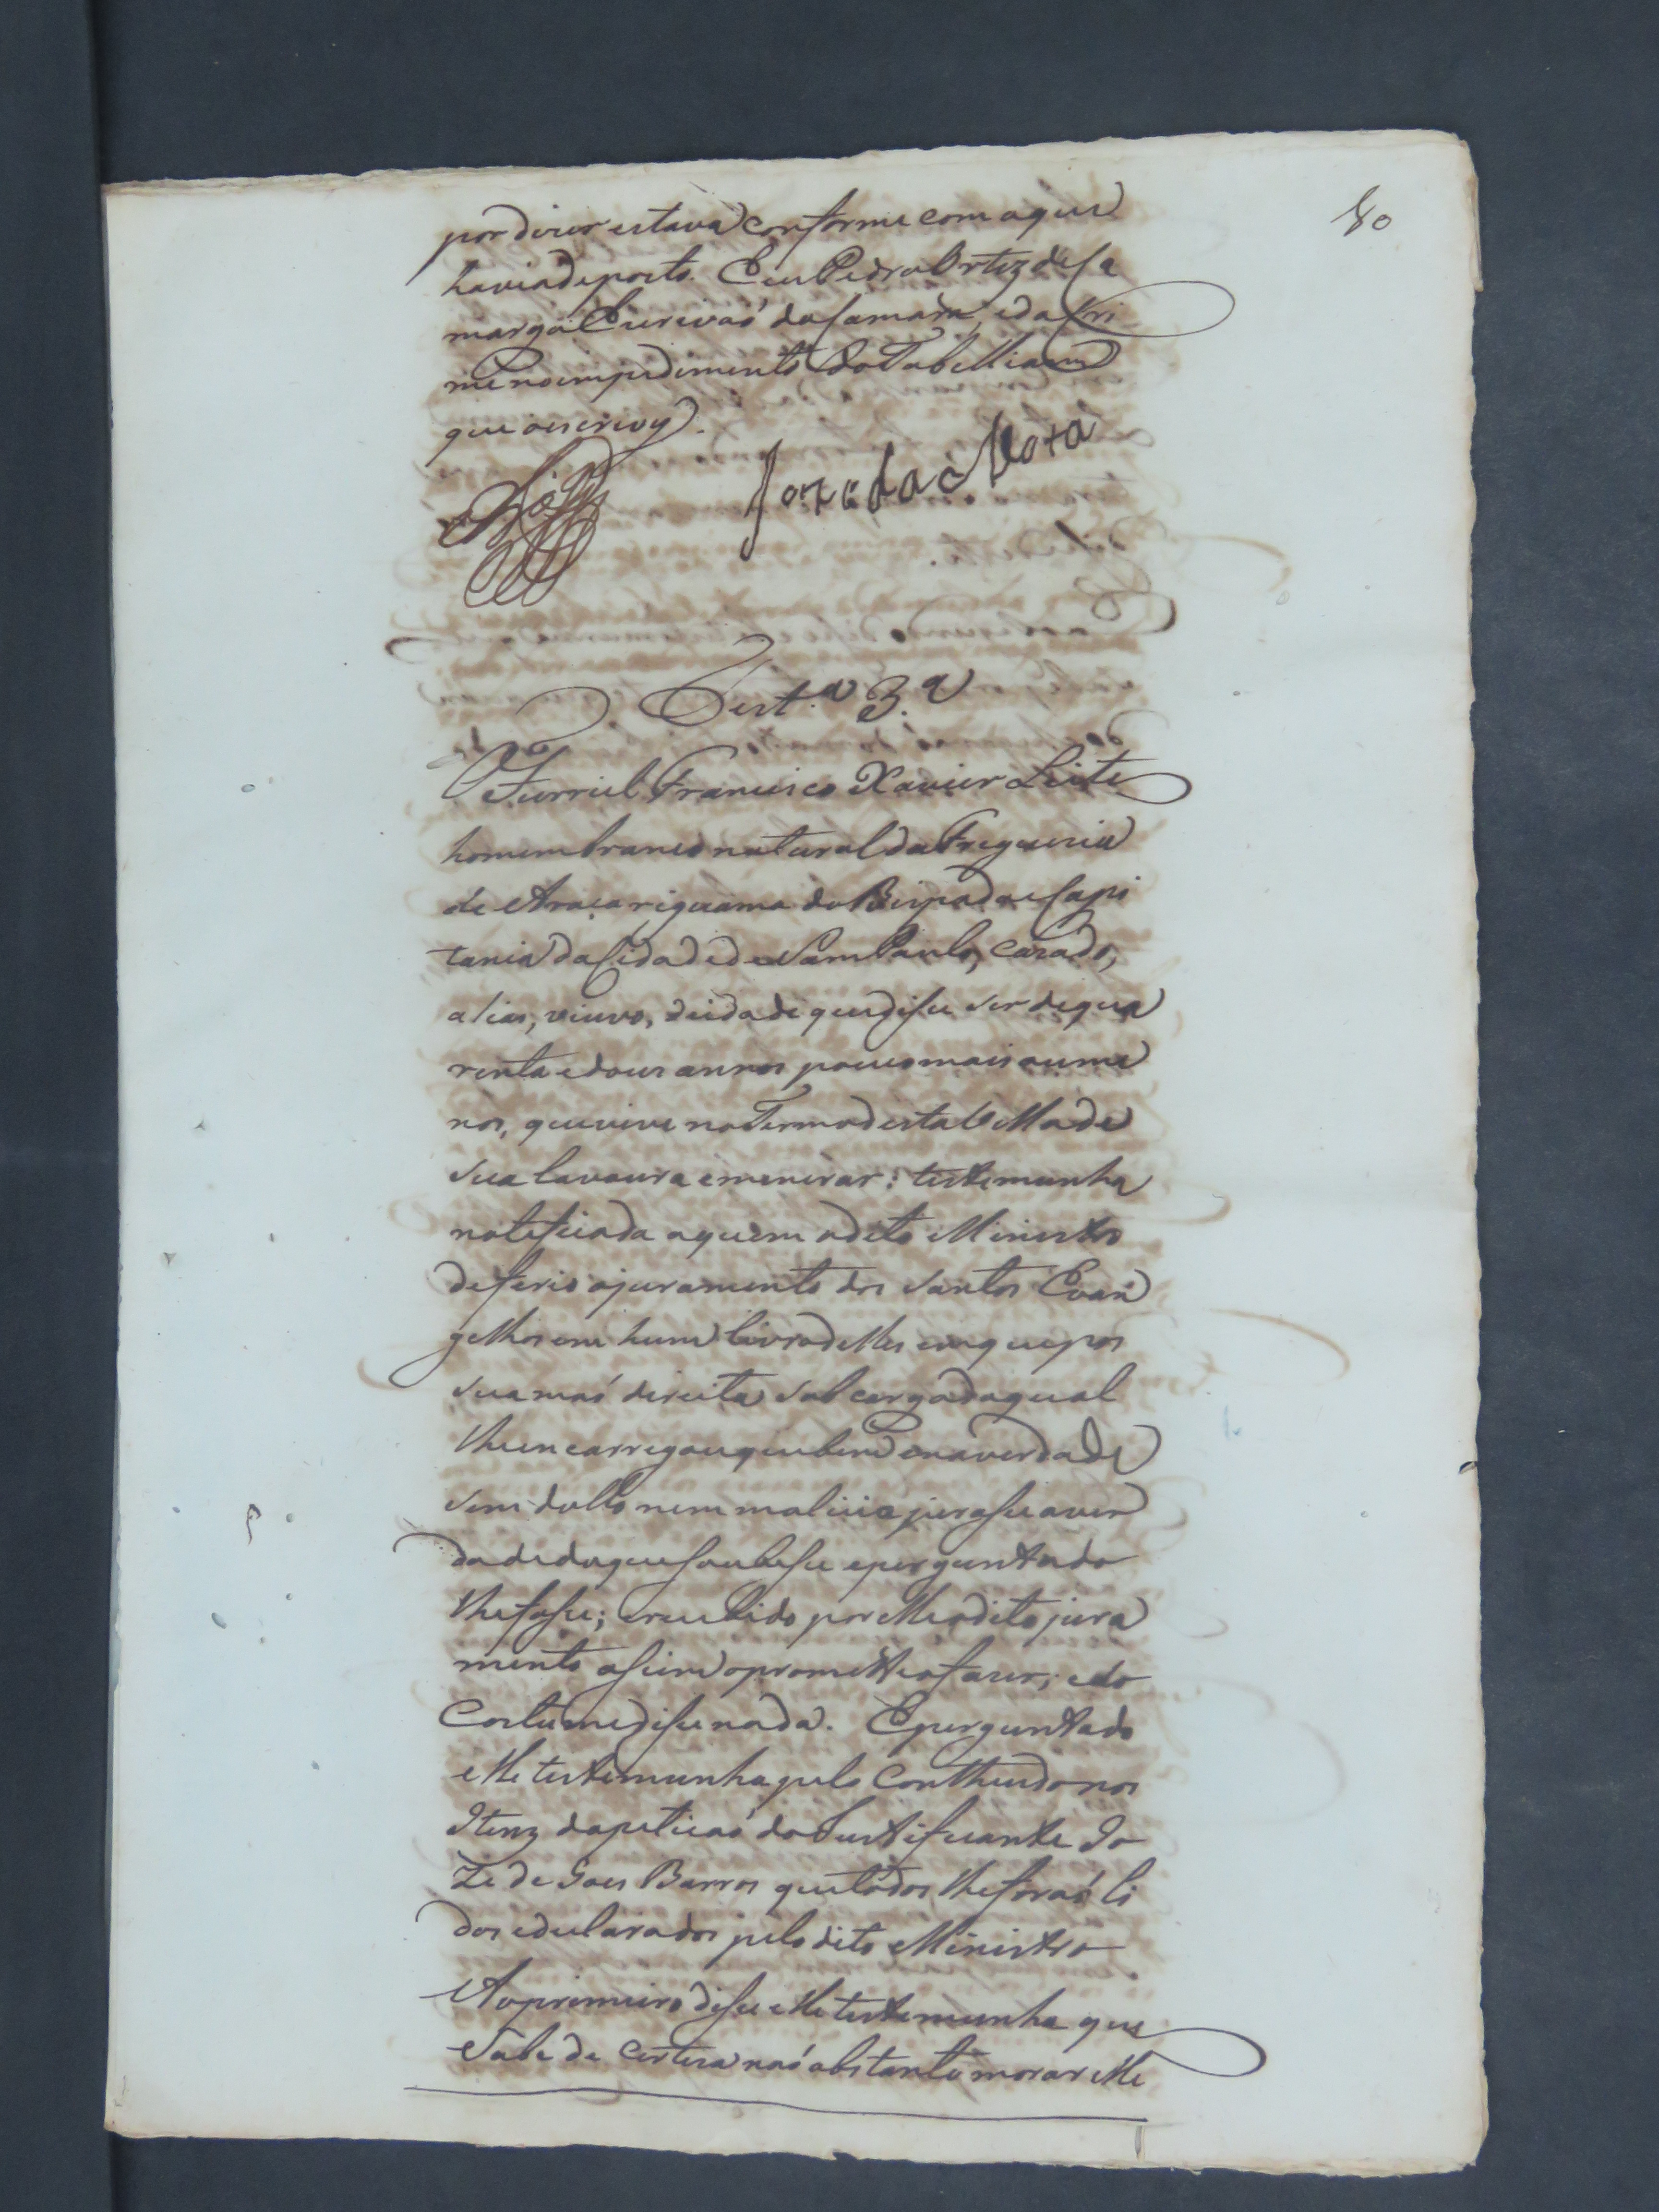 80
por dizer estava conforme com o que
havia deposto. E eu Pedro Ortiz de Ca
margo Escrivaõ da Camara, e da Cri
me no impedimento do Tabelliam
que o escrevy.
Joze da Mota
Test.a 3.a
Furriel Francisco Xavier Leite
homem branco natural da Freguezia
de Araçariguama do Bispado e Capi
tania da Cidade de Sam Paulo, cazado,
alias, viuvo, de idade que disse ser de qua
renta e dous annos pouco mais ou me
nos, que vive no Termo desta Villa de
sua lavoura e menerar: testemunha
noteficada a quem o dito Ministro
deferio o juramento dos Santos Evan
gelhos em hum Livro delles em que pos
sua maõ direita sob cargo do qual
lhe encarregou que bem e na verdade
sem dollo nem malicia jurasse a ver
dade do que soubesse e perguntado
lhe fosse; e recebido por elle o dito jura
mento assim o prometteo fazer; e do
Costume disse nada. E perguntado
elle testemunha pelo Contheudo nos
Itenz da petiçaõ do Justificante Jo
ze de Goes Barros que todos lhe foraõ li
dos e declarados pelo dito Ministro
Ao primeiro disse elle testemunha que
sabe de certeza naõ obstante morar elle